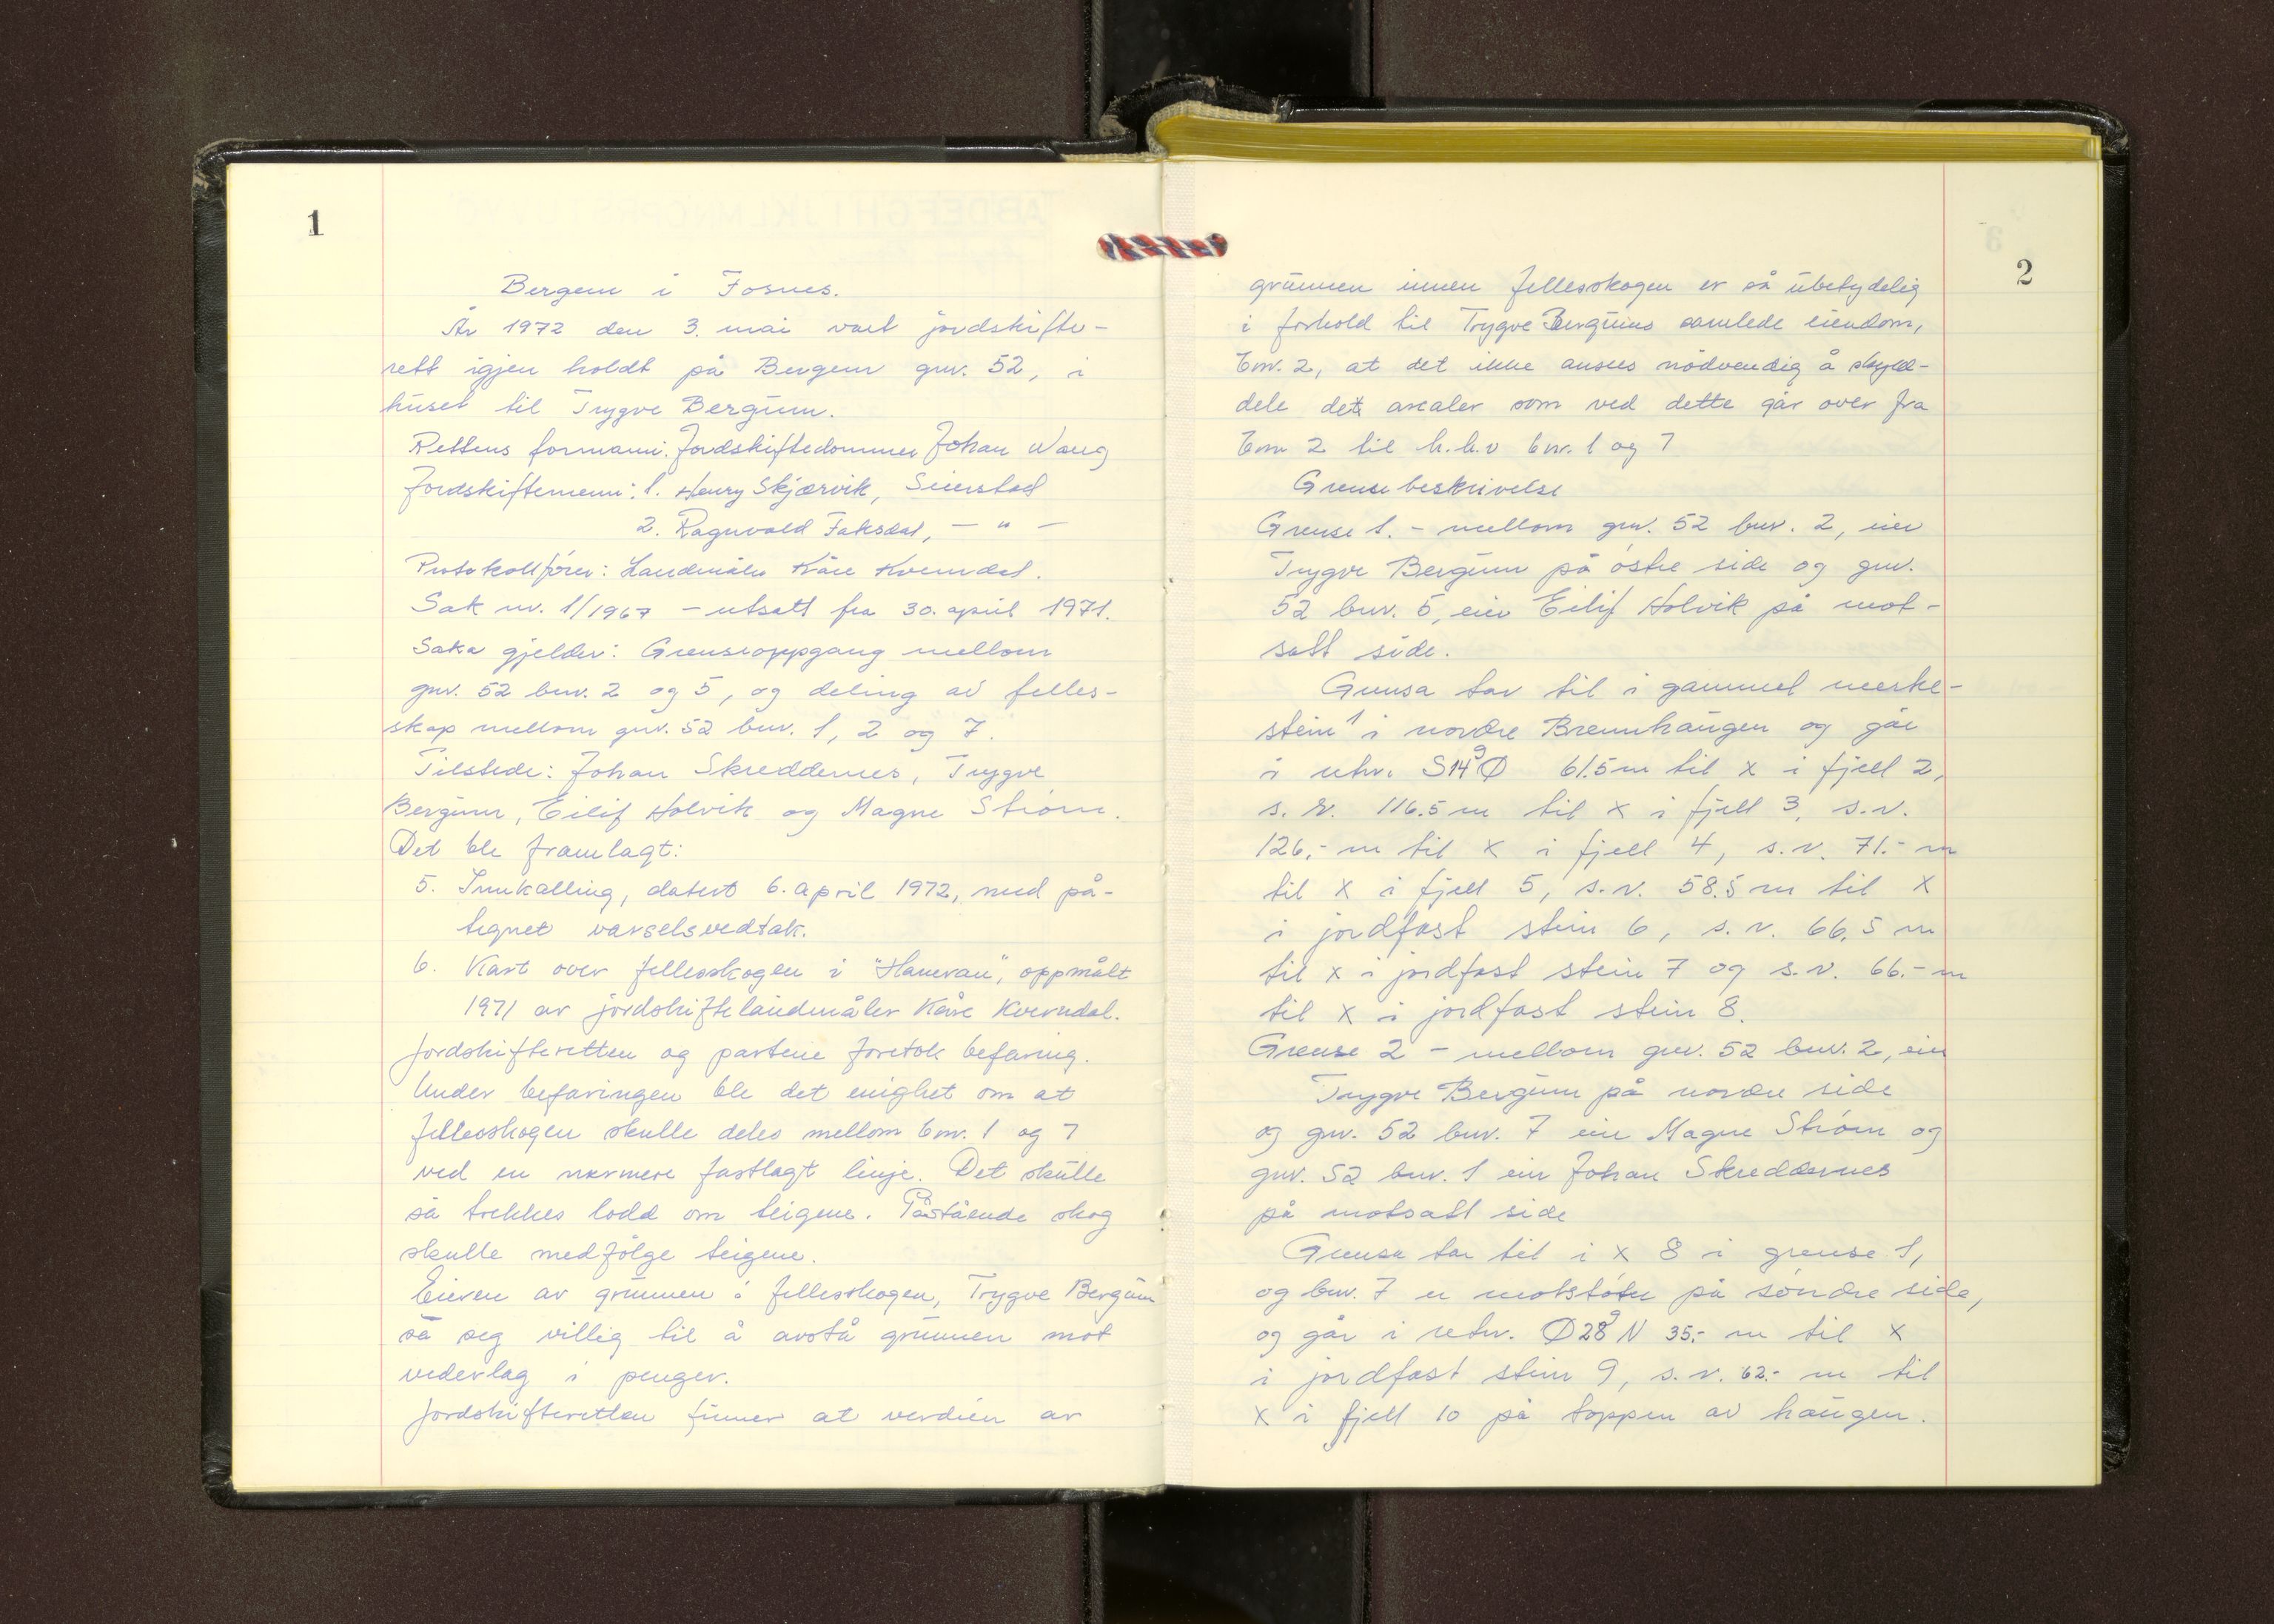 1
Bergem i Fosnes.
År 1972 den 3. mai vart jordskifte-
rett igjen holdt på Bergem gnr. 52, i
huset til Trygve Bergum.
Rettens formann: Jordskiftedommer Johan Waug
Jordskiftemenn: 1. Henry Skjærvik, Seierstad
2. Ragnvald Faksdal, — " —
Protokollfører: Landmåler Kåre Kverndal.
Sak nr. 1/1967 - utsatt fra 30. april 1971.
Saka gjelder: Grenseoppgang mellom
gnr. 52 bnr. 2 og 5, og deling av felles-
skap mellom gnr. 52 bnr. 1, 2 og 7.
Tilstede: Johan Skreddernes, Trygve
Bergum, Eilif Holvik og Magne Strøm.
Det ble framlagt:
5. Innkalling, datert 6. april 1972, med på-
tegnet varselsvedtak.
6. Kart over fellesskogen i "Hameran", oppmålt
1971 av jordskiftelandmåler Kåre Kverndal.
Jordskifteretten og partene foretok befaring.
Under befaringen ble det enighet om at
fellesskogen skulle deles mellom bnr. 1 og 7
ved en nærmere fastlagt linje. Det skulle
så trekkes lodd om teigene. Påstående skog
skulle medfølge teigene.
Eieren av grunnen i fellesskogen, Trygve Bergum
sa seg villig til å avstå grunnen mot
vederlag i penger.
Jordskifteretten finner at verdien av
2
grunnen innen fellesskogen er så ubetydelig
i forhold til Trygve Bergums samlede eiendom,
bnr. 2, at det ikke ansees nødvendig å skyld-
dele det arealer som ved dette går over fra
bnr 2 til h.h.v bnr. 1 og 7
Grensebeskrivelse
Grense 1. - mellom gnr. 52 bnr. 2, eier
Trygve Bergum på østre side og gnr.
52 bnr. 5, eier Eilif Holvik på mot-
satt side.
Grensa tar til i gammel merke-
stein 1 i nordre Brennhaugen og går
i retn. S14g Ø 61.5 m til x i fjell 2,
s. r. 116.5 m til x i fjell 3, s.r.
126,- m til x i fjell 4, s.r. 71.- m
til x i fjell 5, s.r. 58.5 m til x
i jordfast stein 6, s.r. 66.5 m
til x i jordfast stein 7 og s.r. 66.- m
til x i jordfast stein 8.
Grense 2 - mellom gnr. 52 bnr. 2, eier
Trygve Bergum på nordre side
og gnr. 52 bnr. 7 eier Magne Strøm og
gnr. 52 bnr. 1 eier Johan Skreddernes
på motsatt side
Grensa tar til i x 8 i grense 1,
og bnr. 7 er motstøter på søndre side,
og går i retn. Ø28g N 35.- m til x
i jordfast stein 9, s.r. 62.- m til
x i fjell 10 på toppen av haugen.